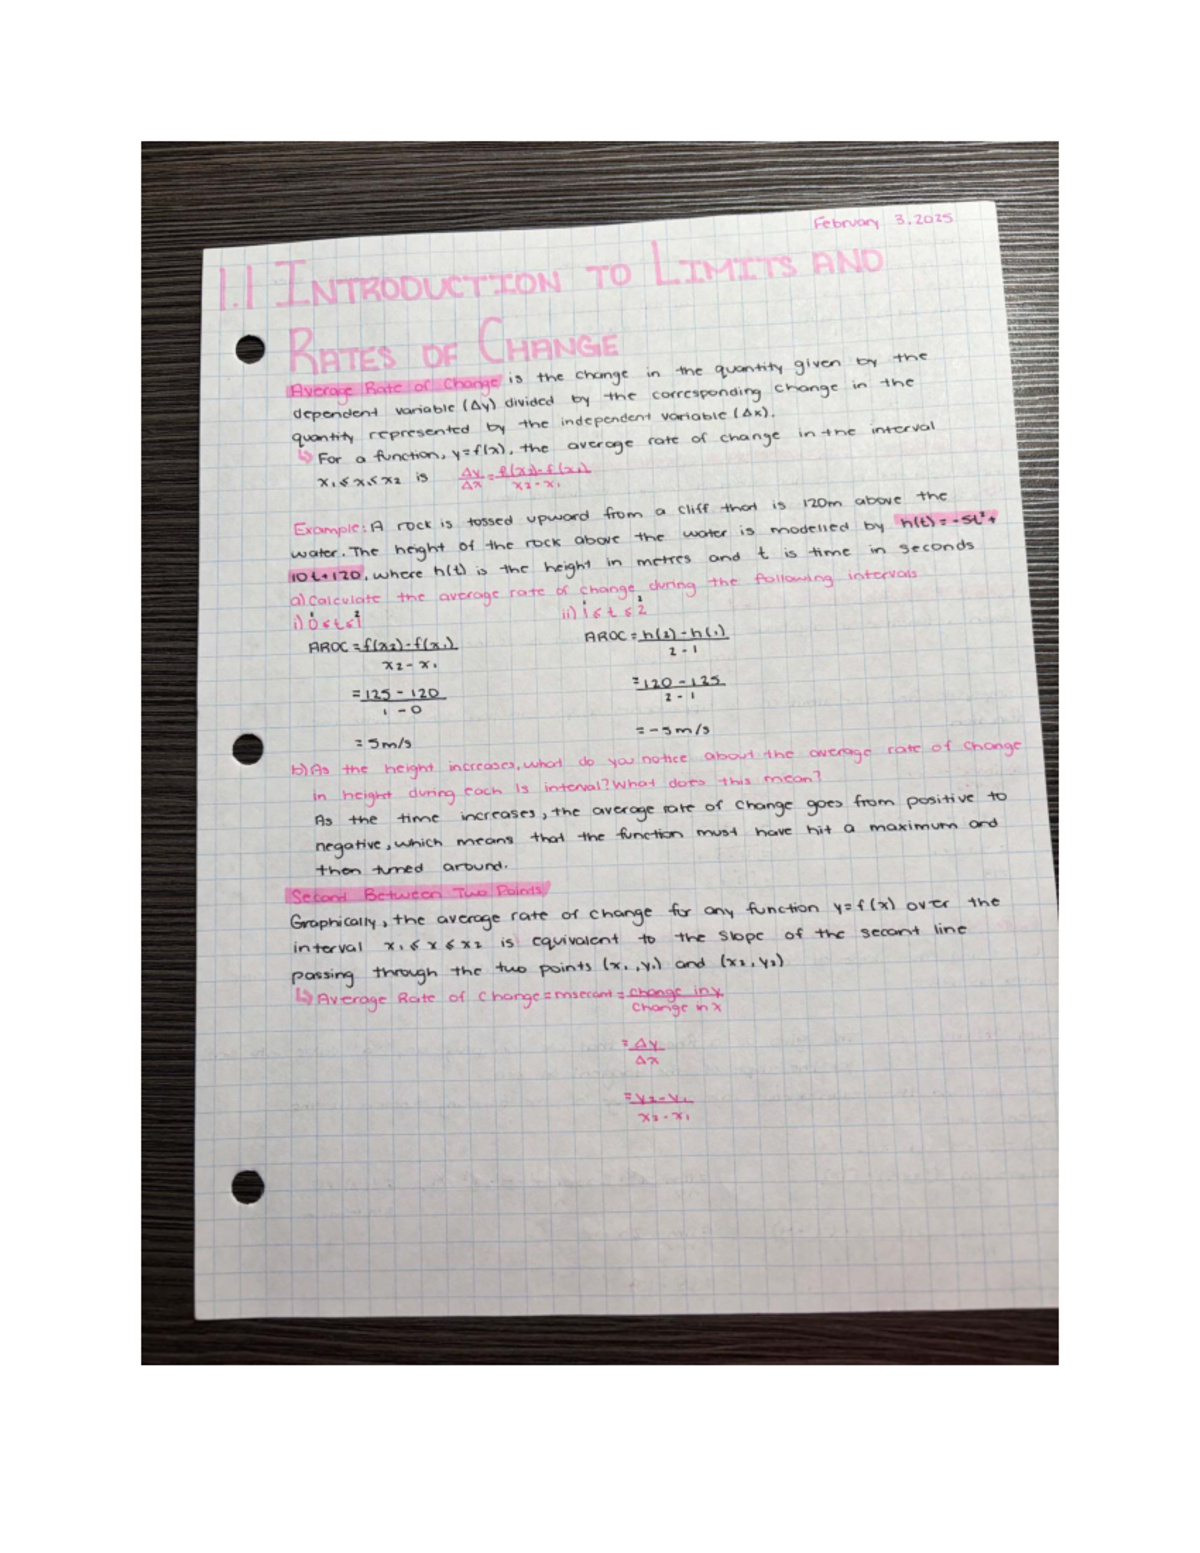 February 3, 2025
1.1 INTRODUCTION TO LIMITS AND
RATES OF CHANGE
Average Rate of Change is the change in the quantity given by the
dependent variable (Δy) divided by the corresponding change in the
quantity represented by the independent variable (Δx).
↳ For a function, y=f(x), the average rate of change in the interval
x₁≤x≤x₂ is Δy/Δx = f(x₂)-f(x₁)/x₂-x₁
Example: A rock is tossed upward from a cliff that is 120m above the
water. The height of the rock above the water is modelled by h(t)=-5t²+
10t+120, where h(t) is the height in metres and t is time in seconds
a) Calculate the average rate of change during the following intervals
i) 0≤t≤1 ii) 1≤t≤2
AROC = f(x₂)-f(x₁) AROC = h(2)-h(1)
x₂-x₁ 2-1
= 125-120 = 120-125
1-0 2-1
= 5m/s = -5m/s
b) As the height increases, what do you notice about the average rate of change
in height during each 1s interval? What does this mean?
As the time increases, the average rate of change goes from positive to
negative, which means that the function must have hit a maximum and
then turned around.
Second Between Two Points
Graphically, the average rate of change for any function y=f(x) over the
interval x₁≤x≤x₂ is equivalent to the slope of the secant line
passing through the two points (x₁,y₁) and (x₂,y₂)
↳ Average Rate of Change = msecant = change in y
change in x
= Δy
Δx
= y₂-y₁
x₂-x₁